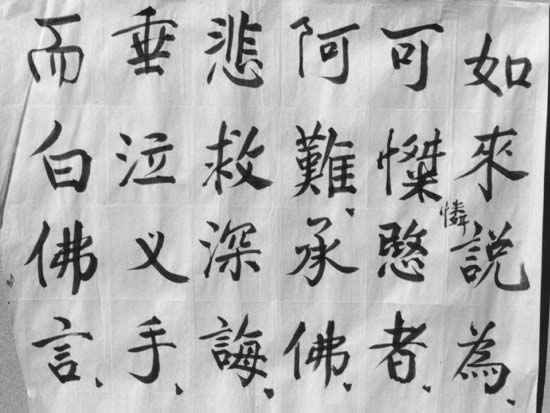 如來說為、
可慜者、
憐
阿難、承佛、
悲救深誨、
垂泣义手、
而白佛言、